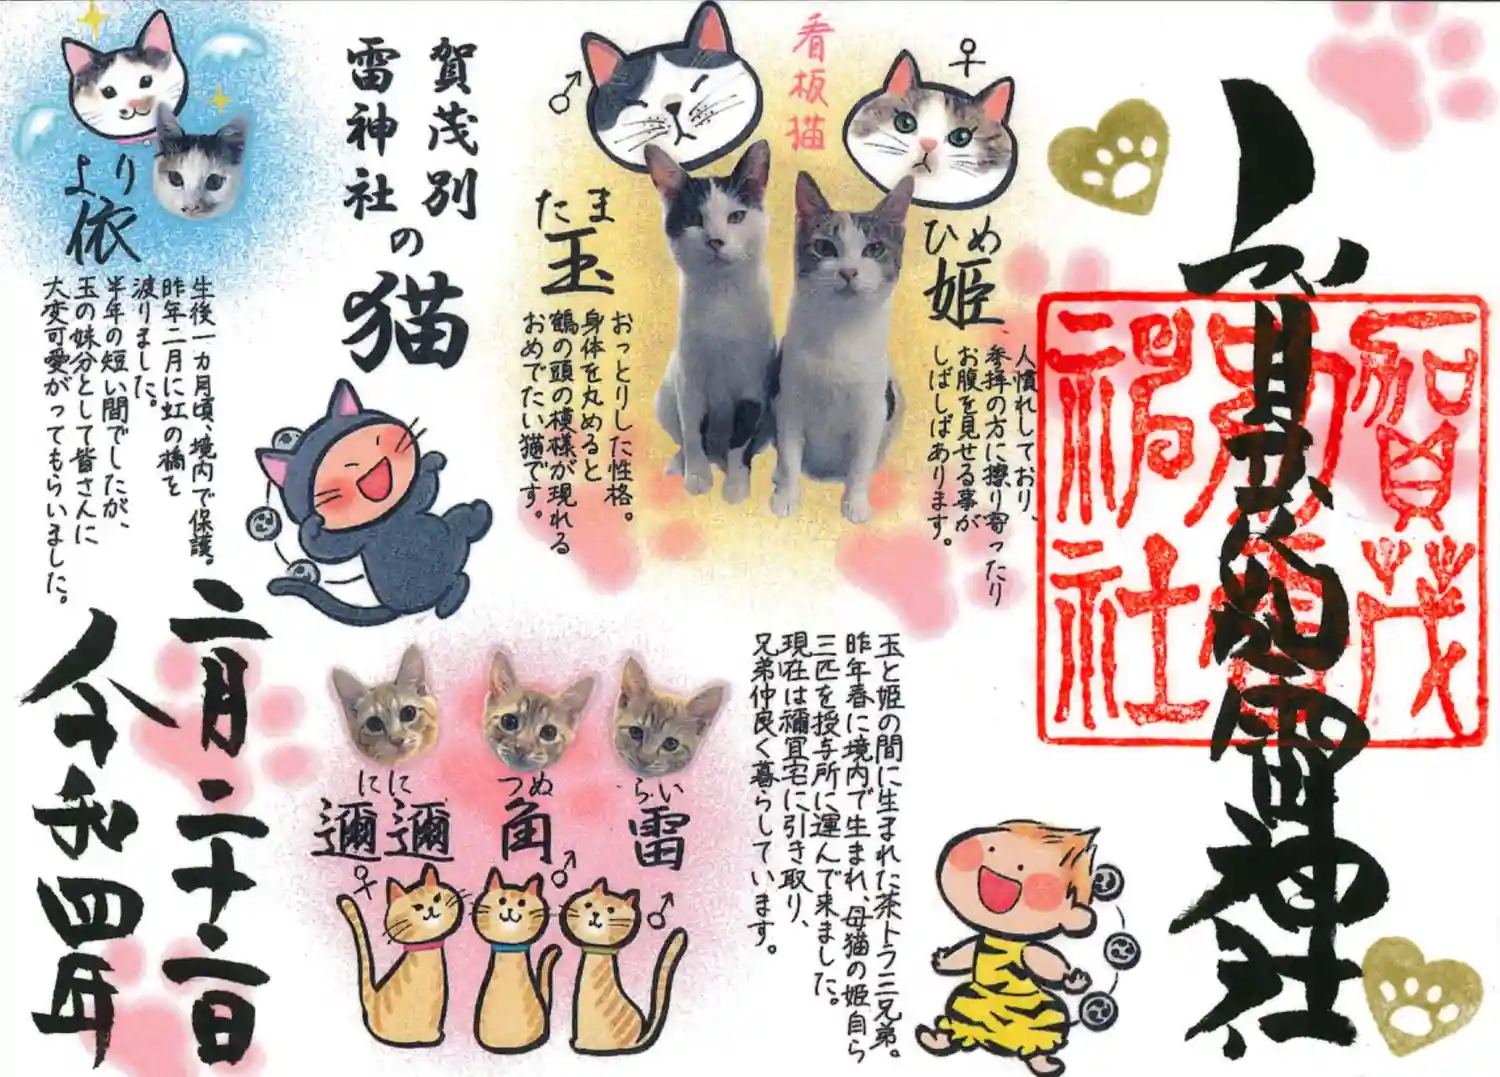 賀茂別雷神社
賀茂
別雷
神社
看板猫
♀
ひめ
姫
人慣れしており、
参拝の方に擦り寄ったり
お腹を見せる事が
しばしばあります。
♂
たま
玉
おっとりした性格。
身体を丸めると
鶴の頭の模様が現れる
おめでたい猫です。
賀茂別
雷神社
の
猫
より
依
生後一カ月頃、境内で保護。
昨年二月に虹の橋を
渡りました。
半年の短い間でしたが、
玉の妹分として皆さんに
大変可愛がってもらいました。
玉と姫の間に生まれた茶トラ三兄弟。
昨年春に境内で生まれ、母猫の姫自ら
三匹を授与所に運んで来ました。
現在は禰宜宅に引き取り、
兄弟仲良く暮らしています。
らい
雷
♂
つぬ
角
♂
にに
邇邇
♀
二月二十二日
令和四年